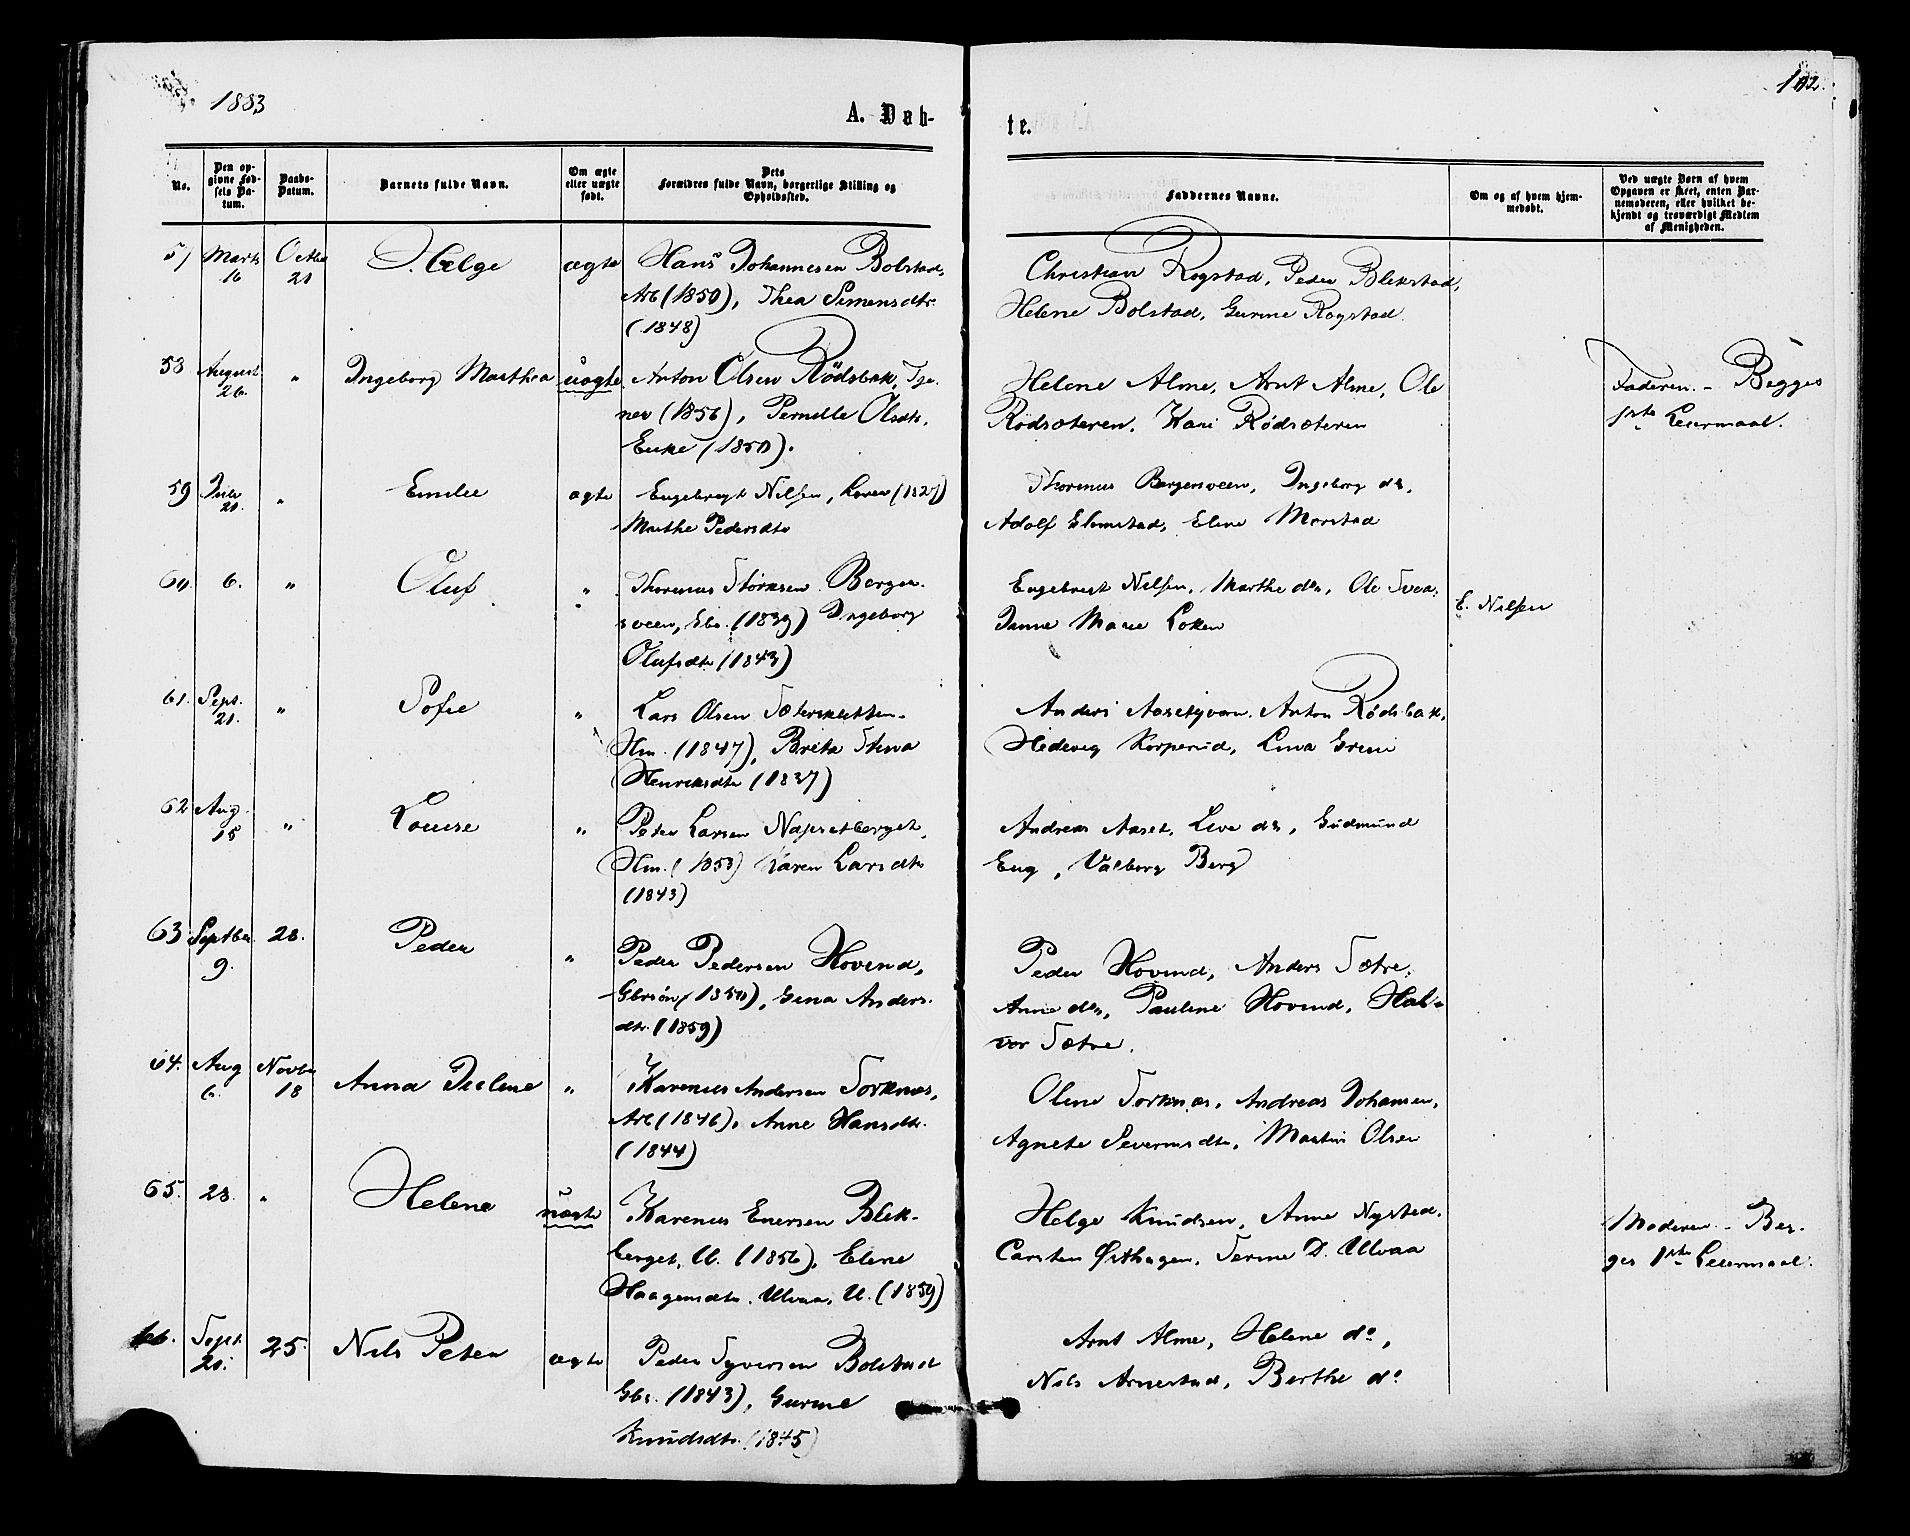 1883
102.
A. Døb-
te.
No.
Den op-
givne Fød-
sels Da-
tum.
Daabs-
Datum.
Barnets fulde Navn.
Om ægte
eller uægte
født.
Dets
Forældres fulde Navn, borgerlige Stilling og
Opholdssted.
Faddernes Navne.
Om og af hvem hjem-
medøbt.
Ved uægte Børn af hvem
Opgaven er skeet, enten Bar-
nemoderen, eller hvilket be-
kjendt og troværdigt Medlem
af Menigheden.
57 Marts 16 Octbr 21 Helge ægte Hans Johannesen Bolstad,
Arb (1850), Thea Simensdtr.
(1848)
Christian Rogstad, Peder Blekstad,
Helene Bolstad, Gurine Rogstad
58 August 26. " Ingeborg Marthea uægte Anton Olsen Rödsbak, Tje-
ner (1856), Pernille Olsdtr.
Enke (1850).
Helene Alme, Arnt Alme, Ole
Rödsæteren, Kari Rødsæteren
Faderen. - Begges
1ste Leiermaal.
59 Juli 21. " Emilie ægte Engebregt Nilsen, Loren (1827)
Marthe Pedersdtr
Thorinus Bergersveen, Ingeborg do,
Adolf Elvestad, Eline Morstad
60. 6. " Oluf " Thorinus Störksen Berger-
sveen, Gbr. (1839) Ingeborg
Olufsdtr (1843)
Engebregt Nilsen, Marthe do, Ole Svea,
Janne Marie Loken
E. Nilsen
61. Sept. 21. " Sofie " Lars Olsen Sætersletten
Hm. (1847), Brita Stina
Henriksdtr (1837)
Anders Aasetjvern, Anton Rødsbak,
Hedevig Korperud, Lina Greni
62 Aug. 15 " Louise " Peder Larsen Napsetberget,
Hm. (1853) Karen Larsdtr
(1843)
Andreas Aaset, Live do, Gudmund
Eng, Valborg Berg
63 Septbr. 9. 28. Peder " Peder Pedersen Hovind,
Gbrsön (1850), Gina Anders-
dtr. (1859)
Peder Hovind, Anders Sætre,
Anne do, Pauline Hovind, Hal-
vor Sætre.
64. Aug 6. Novbr 18 Anna Juline " Karenus Andersen Torknæs,
Arb (1846), Anne Hansdtr.
(1844)
Oline Torknæs, Andreas Johansen,
Agnete Severinsdtr, Martin Olsen
65. 28. " Helene uægte Karenus Enersen Blek-
berget, U. (1856), Eline
Haagensdtr. Ulvaa, U. (1859)
Helge Knudsen, Anne Nystad,
Carsten Østhagen, Serine D. Ulvaa
Moderen - Beg-
ges 1ste Leiermaal.
66. Sept. 20. 25. Nils Peter ægte Peder Syversen Bolstad
Gbr. (1843), Gurine
Knudsdtr. (1845)
Arnt Alme, Helene do,
Nils Arnestad, Berthe do